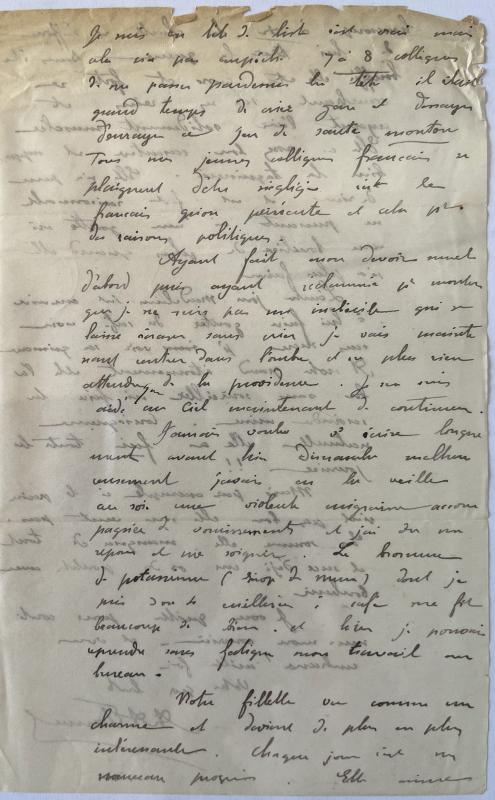 Je suis en tête de liste c'est vrai mais
cela n'a pas empêché 7 à 8 collègues
de me passer par dessus la tête il était
grand temps de crier gare et d'essayer
d'enrayer ce jeu de saute mouton
Tous mes jeunes collègues français se
plaignent d'être négligés c'est le
français qu'on persécute et cela pr
des raisons politiques.
Ayant fait mon devoir
d'abord puis ayant réclamé pr montrer
que je ne suis pas un imbécile qui se
laisse écraser sans crier je vais mainte
nant rentrer dans l'ombre et ne plus rien
attendre que de la providence. Je me suis
aidé au Ciel maintenant de continuer.
J'aurais voulu vs écrire longue
ment avant hier Dimanche malheu
reusement j'avais eu la veille
au soir une violente migraine accom
pagnée de vomissements et j'ai du me
reposer et me soigner. Le bromure
de potassium (sirop de) dont je
pris deux cuillerées, café me fit
beaucoup de bien et hier je pouvais
reprendre sans fatigue mon travail au
bureau.
Votre fillette va comme un
charme et devient de plus en plus
intéressante. Chaque jour c'est un
nouveau progrès. Elle